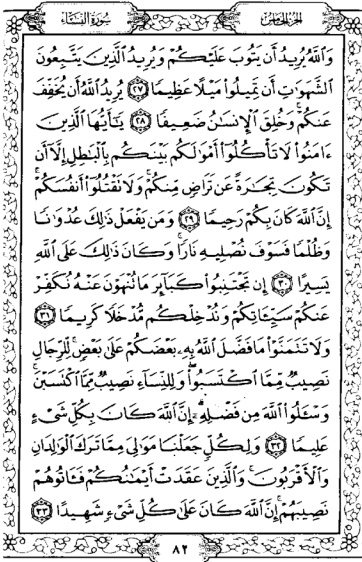 سورة النساء
الجزء الخامس
وَاللَّهُ يُرِيدُ أَن يَتُوبَ عَلَيْكُمْ وَيُرِيدُ الَّذِينَ يَتَّبِعُونَ
الشَّهَوَاتِ أَن تَمِيلُوا مَيْلًا عَظِيمًا ٢٧ يُرِيدُ اللَّهُ أَن يُخَفِّفَ
عَنكُمْ وَخُلِقَ الْإِنسَانُ ضَعِيفًا ٢٨ يَٰٓأَيُّهَا الَّذِينَ
ءَامَنُوا لَا تَأْكُلُوٓا أَمْوَٰلَكُم بَيْنَكُم بِالْبَٰطِلِ إِلَّآ أَن
تَكُونَ تِجَٰرَةً عَن تَرَاضٍ مِّنكُمْ وَلَا تَقْتُلُوٓا أَنفُسَكُمْ
إِنَّ اللَّهَ كَانَ بِكُمْ رَحِيمًا ٢٩ وَمَن يَفْعَلْ ذَٰلِكَ عُدْوَٰنًا
وَظُلْمًا فَسَوْفَ نُصْلِيهِ نَارًا وَكَانَ ذَٰلِكَ عَلَى اللَّهِ
يَسِيرًا ٣٠ إِن تَجْتَنِبُوا كَبَآئِرَ مَا تُنْهَوْنَ عَنْهُ نُكَفِّرْ
عَنكُمْ سَيِّـَٔاتِكُمْ وَنُدْخِلْكُم مُّدْخَلًا كَرِيمًا ٣١
وَلَا تَتَمَنَّوْا مَا فَضَّلَ اللَّهُ بِهِۦ بَعْضَكُمْ عَلَىٰ بَعْضٍ لِّلرِّجَالِ
نَصِيبٌ مِّمَّا اكْتَسَبُوا وَلِلنِّسَآءِ نَصِيبٌ مِّمَّا اكْتَسَبْنَ
وَسْـَٔلُوا اللَّهَ مِن فَضْلِهِۦٓ إِنَّ اللَّهَ كَانَ بِكُلِّ شَىْءٍ
عَلِيمًا ٣٢ وَلِكُلٍّ جَعَلْنَا مَوَٰلِىَ مِمَّا تَرَكَ الْوَٰلِدَانِ
وَالْأَقْرَبُونَ وَالَّذِينَ عَقَدَتْ أَيْمَٰنُكُمْ فَـَٔاتُوهُمْ
نَصِيبَهُمْ إِنَّ اللَّهَ كَانَ عَلَىٰ كُلِّ شَىْءٍ شَهِيدًا ٣٣
٨٢